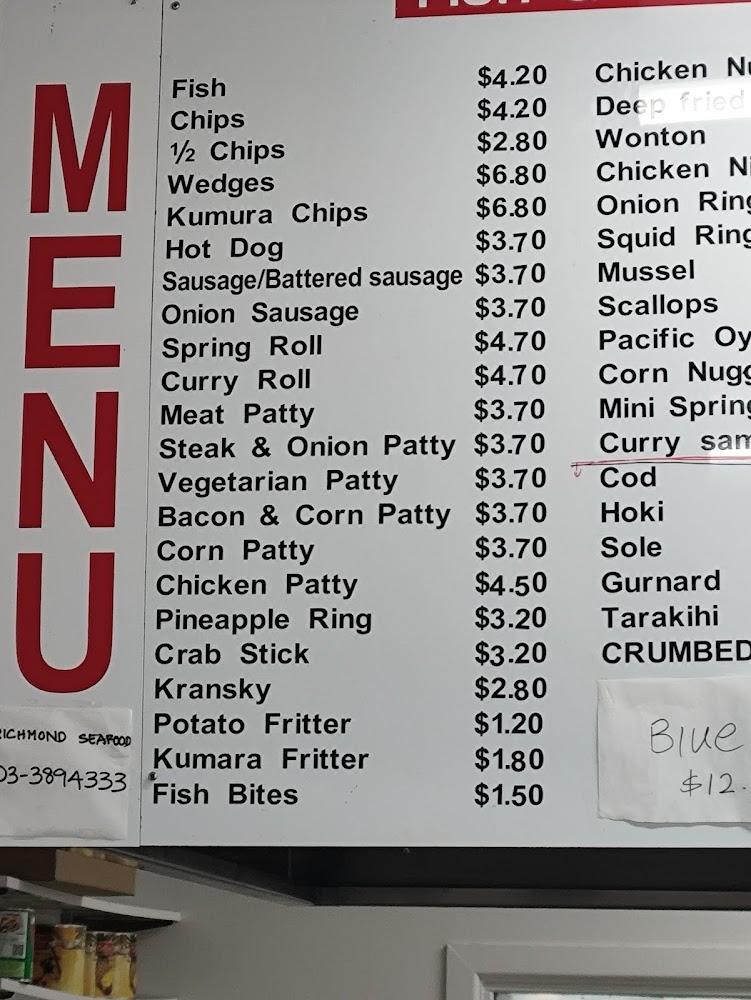 MENU
Fish $4.20
Chips $4.20
½ Chips $2.80
Wedges $6.80
Kumura Chips $6.80
Hot Dog $3.70
Sausage/Battered sausage $3.70
Onion Sausage $3.70
Spring Roll $4.70
Curry Roll $4.70
Meat Patty $3.70
Steak & Onion Patty $3.70
Vegetarian Patty $3.70
Bacon & Corn Patty $3.70
Corn Patty $3.70
Chicken Patty $4.50
Pineapple Ring $3.20
Crab Stick $3.20
Kransky $2.80
Potato Fritter $1.20
Kumara Fritter $1.80
Fish Bites $1.50
Chicken
Deep fried
Wonton
Chicken
Onion Ring
Squid Ring
Mussel
Scallops
Pacific
Corn
Mini Spring
Curry
Cod
Hoki
Sole
Gurnard
Tarakihi
CRUMBED
Blue
$12.
RICHMOND SEAFOOD
03-3894333